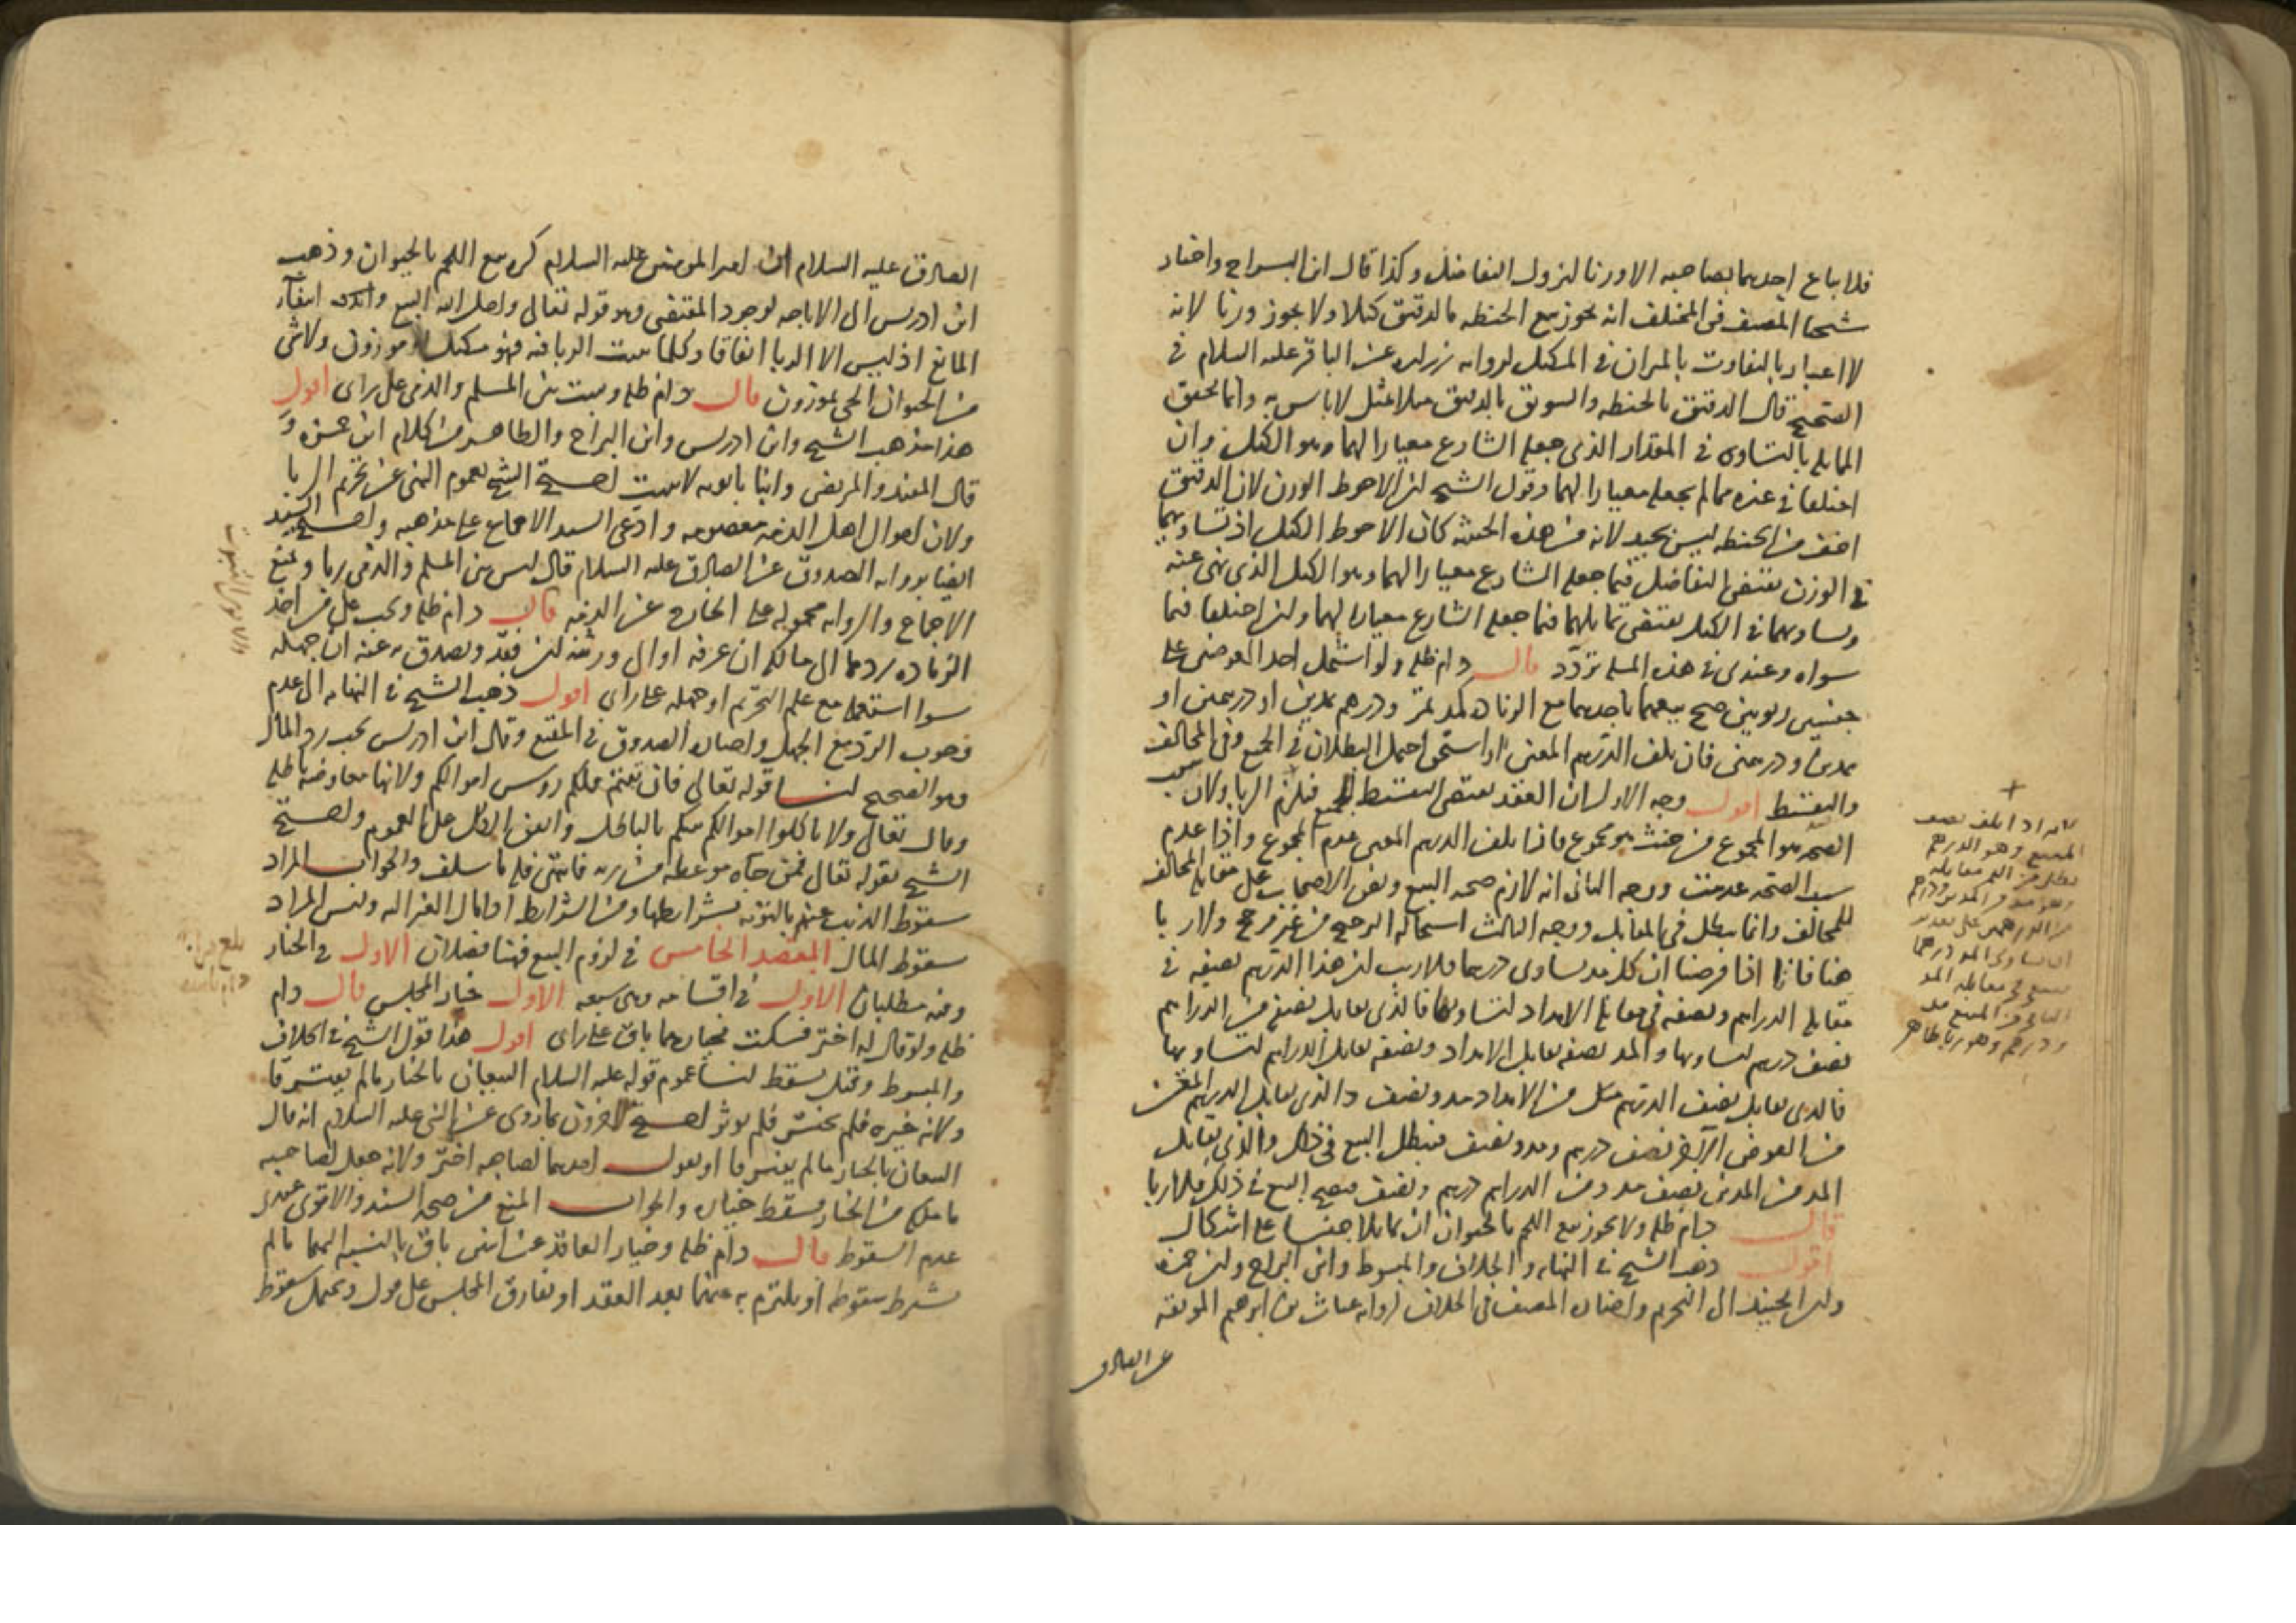 فلا يباع احدهما بصاحبه الا وزنا لنزول التفاضل وكذا قال ابن البراج واختار
شيخنا المصنف في المختلف انه يجوز بيع الحنطه بالدقيق كيلا ولا يجوز وزنا لانه
لا اعتبار بالتفاوت بالميزان في المكيل لروايه زراره عن الباقر عليه السلام في
الصحيح قال الدقيق بالحنطه والسويق بالدقيق مثلا بمثل لا باس به وانما تحقق
المماثله بالتساوي في المقدار الذي جعله الشارع معيارا لهما وهو الكيل وان
اختلفا في غيره مما لم يجعله معيارا لهما وقول الشيخ ان الاحوط الوزن لان الدقيق
اخف من الحنطه ليس بجيد لانه من هذه الحيثيه كان الاحوط الكيل اذ تساويهما
في الوزن يقتضي التفاضل فيما جعله الشارع معيارا لهما وهو الكيل الذي نهى عنه
وتساويهما في الكيل يقتضي تماثلهما فيما جعله الشارع معيارا لهما وان اختلفا فيما
سواه وعندي في هذه المسله تردد قال دام ظله ولو اشتمل احد العوضين على
جنسين ربويين صح بيعهما باحدهما مع الزياده كمد تمر ودرهم بمدين او درهمين او
بمدين ودرهمين فان تلف الدرهم المعين او استحق احتمل البطلان في الجميع وفي المخالف
والتقسيط اقول وجه الاول ان العقد يقتضي التقسيط فيلزم الربا ولان سبب
الصحه هو المجموع من حيث هو مجموع فاذا تلف الدرهم المعين عدم المجموع واذا عدم
سبب الصحه عدمت ووجه الثاني انه لازم صحه البيع ونص الاصحاب على مقابله المخالف
للمخالف وانما يبطل في المقابل ووجه الثالث استحاله الترجيح من غير مرجح ولا ربا
هنا فانا اذا فرضنا ان كل مد يساوي درهما فلا ريب ان هذا الدرهم نصيفه في
مقابله الدراهم ونصفه في مقابله الامداد لتساويها فالذي يقابل نصفه من الدراهم
نصف درهم لتساويها والمد نصفه يقابل الامداد ونصفه يقابل الدراهم لتساويها
فالذي يقابل نصف الدرهم من الامداد مد ونصف والذي يقابل الدرهم المعين
من العوض الآخر نصف درهم ومد ونصف فيبطل البيع في ذلك والذي يقابل
المد من المدين نصف مد ومن الدراهم درهم ونصف فيصح البيع في ذلك فلا ربا
قال دام ظله ولا يجوز بيع اللحم بالحيوان ان تماثلا جنسا على اشكال
اقول ذهب الشيخ في النهايه والخلاف والمبسوط وابن البراج وابن حمزه
وابن الجنيد الى التحريم واختاره المصنف في الخلاف لروايه غياث بن ابرهيم الموثقه
عن الصادق
المبيع وهو الدرهم
ودرهم وهو ربا ظاهر
الصادق عليه السلام ان امير المومنين عليه السلام كره بيع اللحم بالحيوان وذهب
ابن ادريس الى الاباحه لوجود المقتضي وهو قوله تعالى واحل الله البيع وانتفاء
المانع اذ ليس الا الربا اتفاقا وكلما يثبت الربا فيه فهو مكيل او موزون ولا شي
من الحيوان الحي بموزون قال دام ظله ويثبت بين المسلم والذمي على راي اقول
هذا مذهب الشيخ وابن ادريس وابن البراج والظاهر من كلام ابن حمزه و
قال المفيد والمرتضى وابنا بابويه لا يثبت احتج الشيخ بعموم النهي عن تحريم الربا
ولان اموال اهل الذمه معصومه وادعى السيد الاجماع على مذهبه واحتج السيد
ايضا بروايه الصدوق عن الصادق عليه السلام قال ليس بين المسلم والذمي ربا ونمنع
الاجماع والروايه محموله على الخارج عن الذمه قال دام ظله ويجب على من اخذ
الزياده ردها الى مالكها ان عرفه او الى ورثته ان فقد ويتصدق به عنه ان جهله
سوا استعمله مع علم التحريم او جهله على راي اقول ذهب الشيخ في النهايه الى عدم
وجوب الرد مع الجهل واختاره الصدوق في المقنع وقال ابن ادريس يجب رد المال
وهو الصحيح لنا قوله تعالى فان تبتم فلكم روس اموالكم ولانها معاوضه باطله
وقال تعالى ولا تاكلوا اموالكم بينكم بالباطل واتفق الكل على العموم واحتج
الشيخ بقوله تعالى فمن جاءه موعظه من ربه فانتهى فله ما سلف والجواب المراد
سقوط الذنب عنهم بالتوبه بشرايطها ومن الشرايط اداء مال الغير اليه وليس المراد
سقوط المال المقصد الخامس في لزوم البيع فهنا فصلان الاول في الخيار
وفيه مطلبان الاول في اقسامه وهي سبعه الاول خيار المجلس قال دام
ظله ولو قال له اختر فسكت فخيارهما باق على راي اقول هذا قول الشيخ في الخلاف
والمبسوط وقيل يسقط لنا عموم قوله عليه السلام البيعان بالخيار ما لم يفترقا
ولانه خيره فلم يختر فلم يوثر احتج الاخرون بما روي عن النبي عليه السلام انه قال
البيعان بالخيار ما لم يفترقا او يقول احدهما لصاحبه اختر ولانه جعل لصاحبه
ما ملكه من الخيار فسقط خياره والجواب المنع من صحه السند والاقوى عندي
عدم السقوط قال دام ظله وخيار العاقد عن اثنين باق بالنسبه اليهما ما لم
يشترط سقوطه او يلتزم به عنهما بعد العقد او يفارق المجلس على قول ويحتمل سقوط